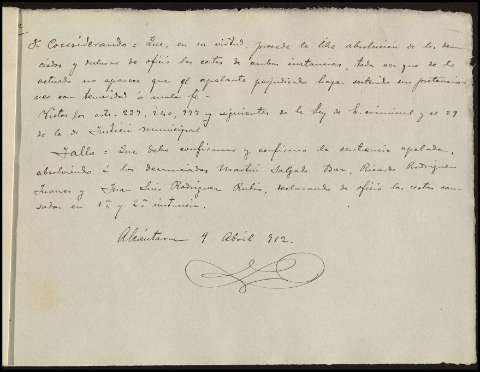 Considerando = Que, en su virtud, procede la libre absolución de los denun
ciados y declarar de oficio las costas de ambas instancias, toda vez que de lo
actuado no aparece que el apelante perjudicado haya sostenido sus pretensio
nes con temeridad ó mala fé.-
Vistos los arts. 239, 240, 977 y siguientes de la Ley de E. criminal y el 29
de la de Justicia municipal
Fallo = Que debo confirmar y confirmo la sentencia apelada,
absolviendo á los denunciados Martín Salgado Bar, Ricardo Rodríguez
Juanes y José Luis Rodríguez Rubio, declarando de oficio las costas cau-
sadas en 1ª y 2ª instancia.
Alcántara 9 Abril 912.